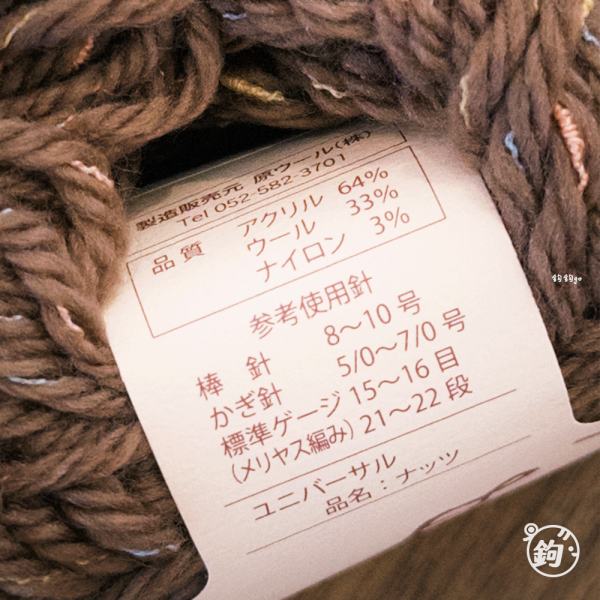 製造販売元 原ウール(株)
Tel 052-582-3701
品質 アクリル 64%
ウール 33%
ナイロン 3%
参考使用針
棒針 8〜10号
かぎ針 5/0〜7/0号
標準ゲージ 15〜16目
(メリヤス編み) 21〜22段
ユニバーサル
品名：ナッツ
鉤鉤go
鉤